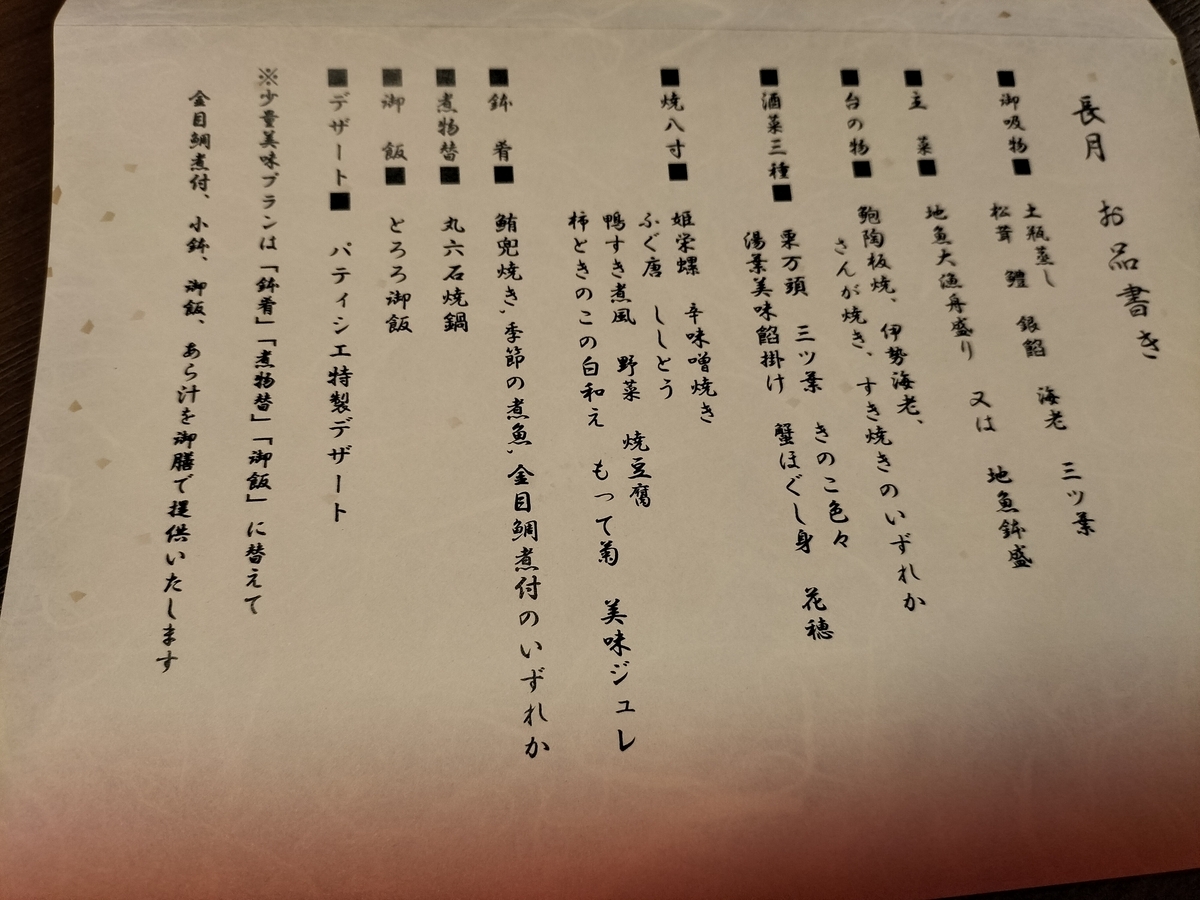 長月 お品書き
■御吸物■ 土瓶蒸し
松茸 鱧 銀餡 海老 三ツ葉
■主 菜■ 地魚大漁舟盛り 又は 地魚鉢盛
■台の物■ 鮑陶板焼、伊勢海老、
さんが焼き、すき焼きのいずれか
■酒菜三種■ 栗万頭 三ツ葉 きのこ色々
湯葉美味餡掛け 蟹ほぐし身 花穂
■焼八寸■ 姫栄螺 辛味噌焼き
ふぐ唐 ししとう
鴨すき煮風 野菜 焼豆腐
柿ときのこの白和え もって菊 美味ジュレ
■鉢 肴■ 鮪兜焼き、季節の煮魚、金目鯛煮付のいずれか
■煮物替■ 丸六石焼鍋
■御 飯■ とろろ御飯
■デザート■ パティシエ特製デザート
※少量美味プランは「鉢肴」「煮物替」「御飯」に替えて
金目鯛煮付、小鉢、御飯、あら汁を御膳で提供いたします